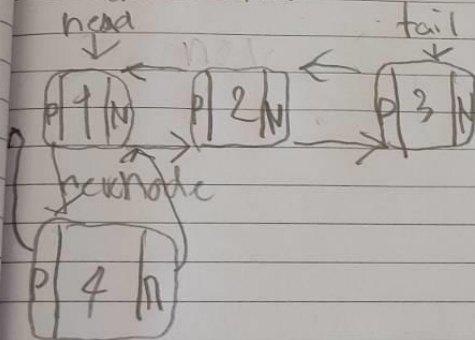 head tail
P 1 N P 2 N P 3 N
newnode
P 4 n